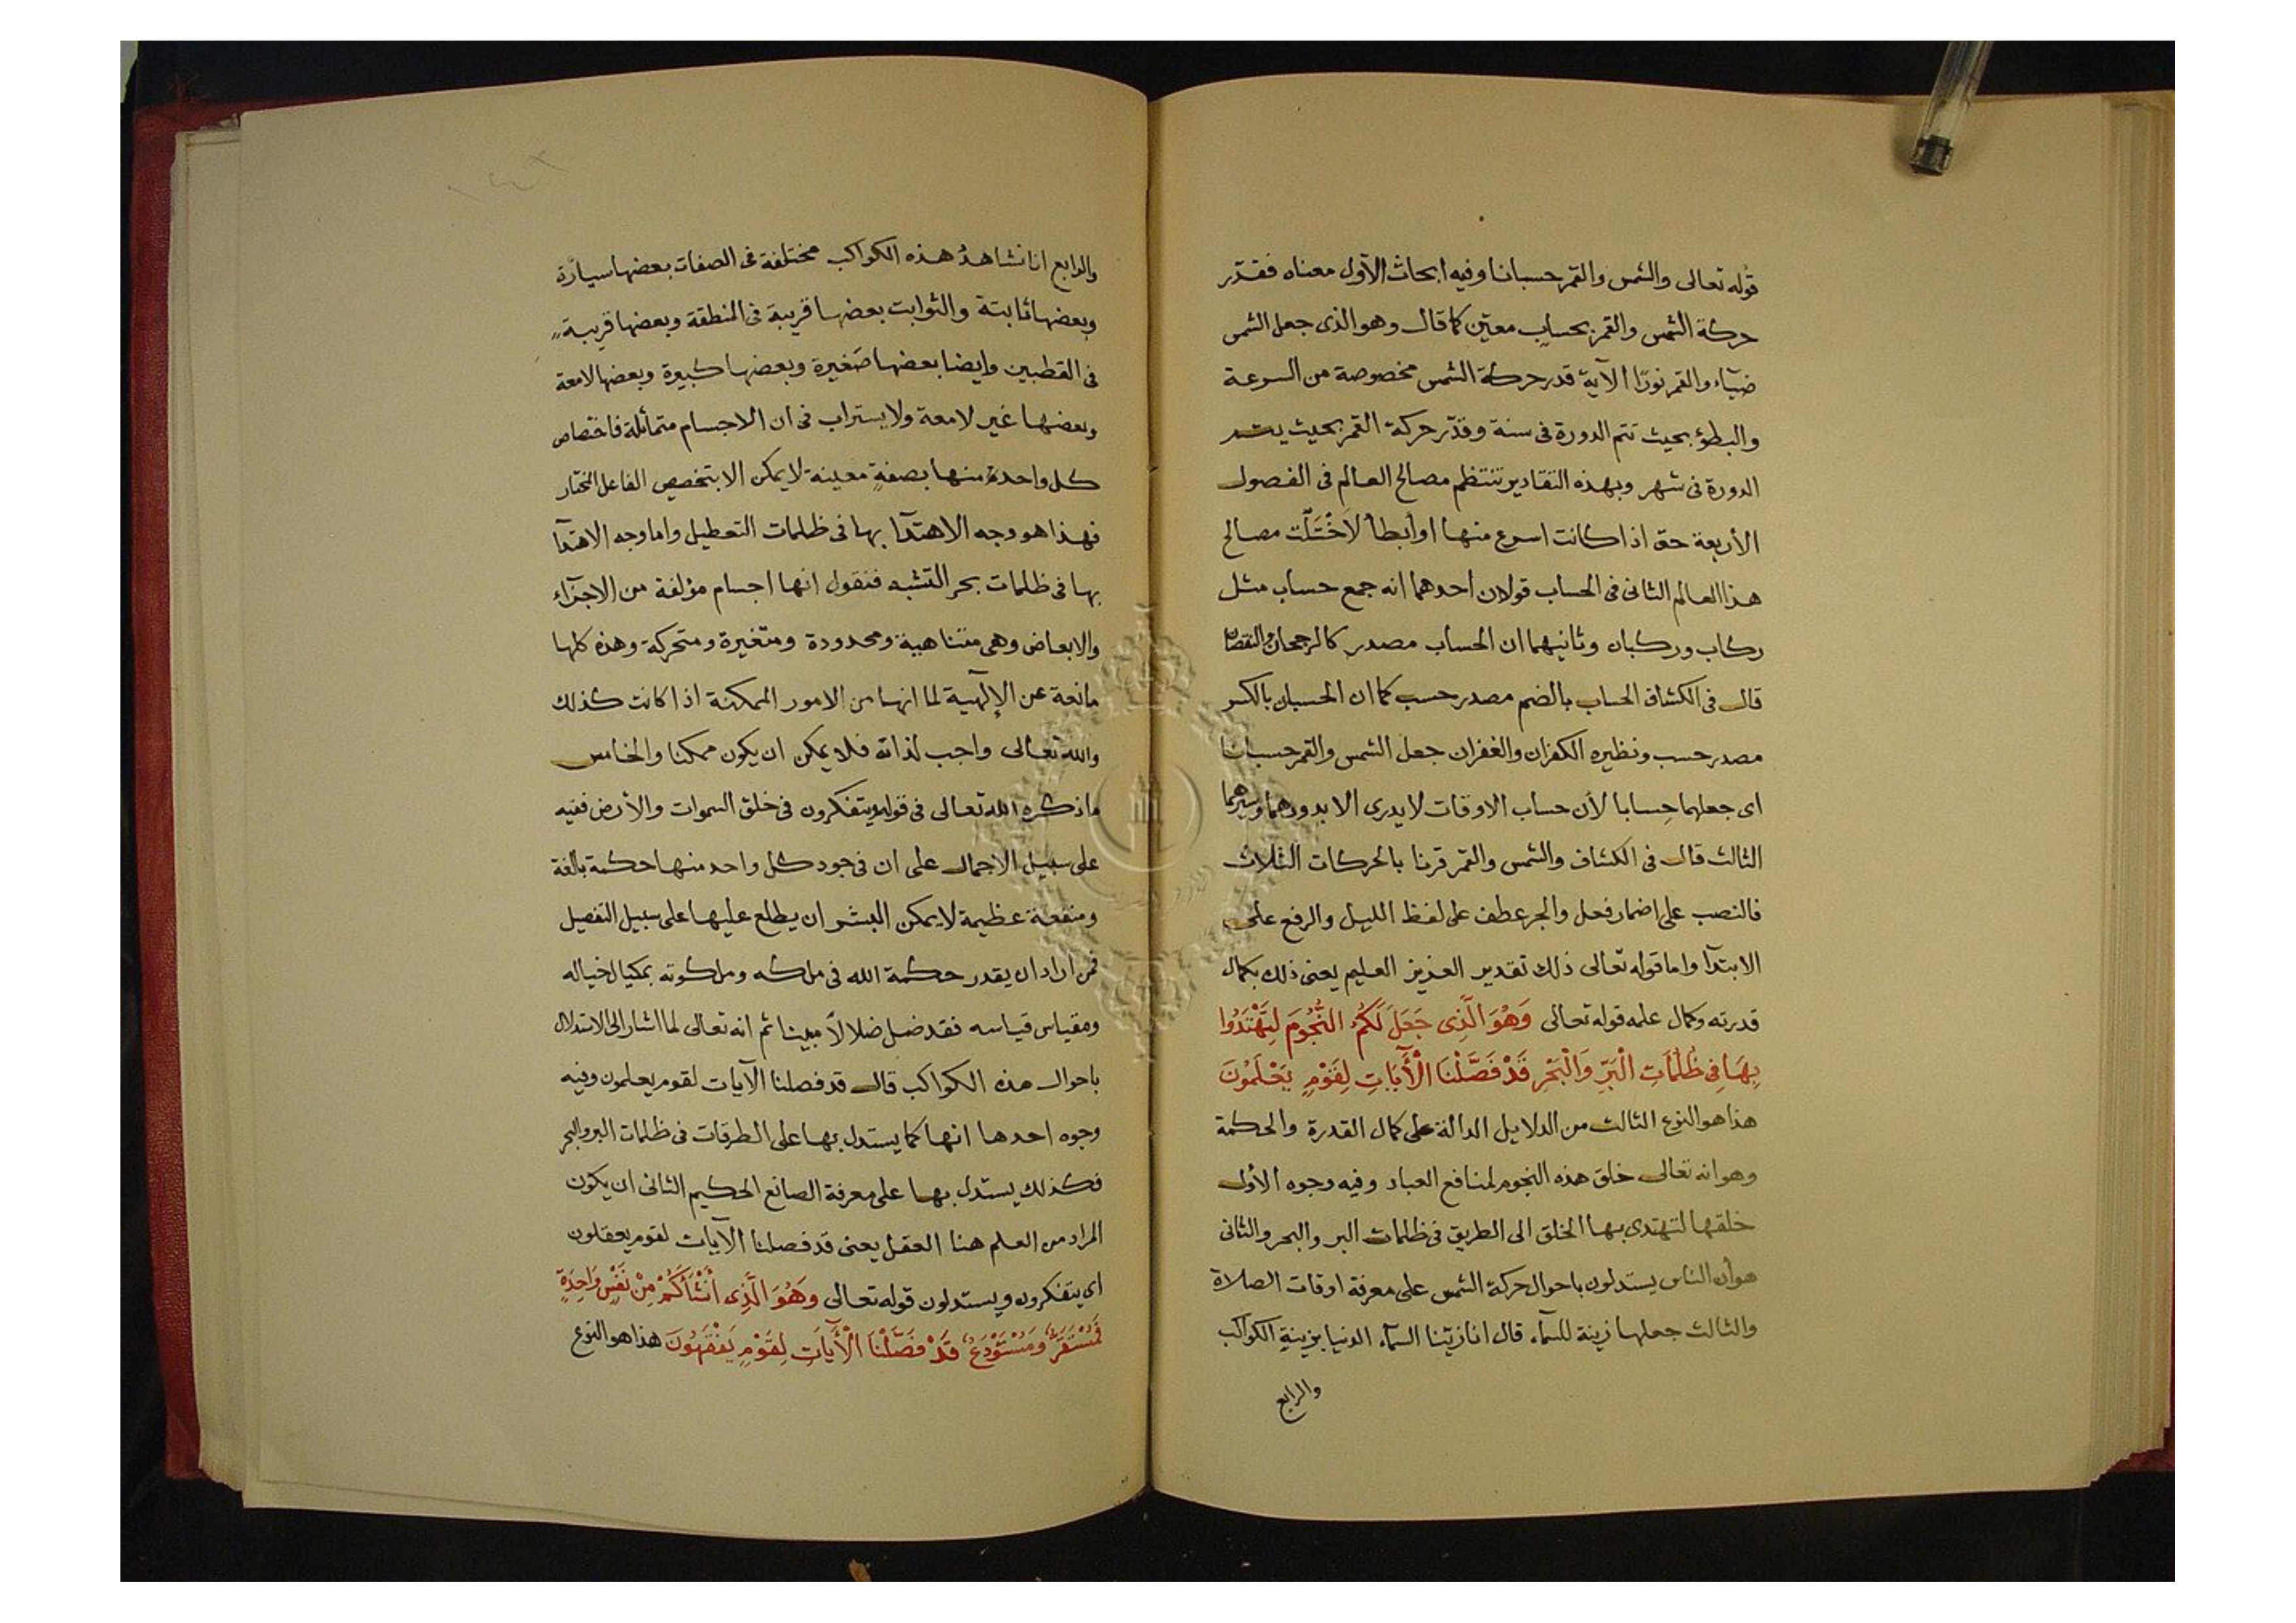 قوله تعالى والشمس والقمر حسبانا وفيه ابحاث الأول معناه فقدّر
حركة الشمس والقمر بحساب معيّن كما قال وهو الذى جعل الشمس
ضيآء والقمر نورًا الآية قدر حركة الشمس مخصوصة من السرعة
والبطؤ بحيث تتم الدورة فى سنة وقدّر حركة القمر بحيث يتم
الدورة فى شهر وبهذه التقادير تنتظم مصالح العالم فى الفصول
الأربعة حتى اذا كانت اسرع منها او أبطأ لاَخْتَلَّت مصالح
هذا العالم الثانى فى الحساب قولان احدهما انه جمع حساب مثل
ركاب وركبان وثانيهما ان الحساب مصدر كالرجحان والنقصان
قال فى الكشاف الحساب بالضم مصدر حسب كما ان الحسبان بالكسر
مصدر حسب ونظيره الكفران والغفران جعل الشمس والقمر حسبانا
اى جعلهما حِسابا لأن حساب الاوقات لا يدرى الا بدورهما وسيرهما
الثالث قال فى الكشاف والشمس والقمر قرئا بالحركات الثلاث
فالنصب على اضمار فعل والجر عطف على لفظ الليل والرفع على
الابتدآ واما قوله تعالى ذلك تقدير العزيز العليم يعنى ذلك بكمال
قدرته وكمال علمه قوله تعالى وَهُوَ الَّذِى جَعَلَ لَكُمُ النُّجُومَ لِتَهْتَدُوا
بِهَا فِى ظُلُمَاتِ الْبَرِّ وَالْبَحْرِ قَدْ فَصَّلْنَا الْآَيَاتِ لِقَوْمٍ يَعْلَمُونَ
هذا هو النوع الثالث من الدلايل الدالة على كمال القدرة والحكمة
وهو انه تعالى خلق هذه النجوم لمنافع العباد وفيه وجوه الأول
خلقها لتهتدى بها الخلق الى الطريق فى ظلمات البر والبحر والثانى
هو أن الناس يستدلون باحوال حركة الشمس على معرفة اوقات الصلاة
والثالث جعلها زينة للسمآء قال انا زيّنا السمآء الدنيا بزينة الكواكب
والرابع
والرابع انا نشاهدُ هذه الكواكب مختلفة فى الصفات بعضها سيارة
وبعضها ثابتة والثوابت بعضها قريبة فى المنطقة وبعضها قريبة
فى القطبين وايضا بعضها صَغيرة وبعضها كبيرة وبعضها لامعة
وبعضها غير لامعة ولا يستراب فى ان الاجسام متماثلة فاختصاص
كل واحدة منها بصفةٍ معينة لا يمكن الا بتخصيص الفاعل المختار
فهذا هو وجه الاهتدآ بها فى ظلمات التعطيل واما وجه الاهتدآ
بها فى ظلمات بحر التشبه فنقول انها اجسام مؤلفة من الاجزآء
والابعاض وهى متناهية ومحدودة ومتغيرة ومتحركة وهذه كلها
مانعة عن الإلٓهية لما انها من الامور الممكنة اذا كانت كذلك
والله تعالى واجب لذاته فلا يمكن ان يكون ممكنا والخامس
ما ذكره الله تعالى فى قوله ويتفكرون فى خلق السموات والأرض ففيه
على سبيل الاجمال على ان فى جود كل واحد منها حكمة بالغة
ومنفعة عظيمة لا يمكن البشر ان يطلع عليها على سبيل التفصيل
فمن اراد ان يقدر حكمة الله فى ملكه وملكوته بمكيال خياله
ومقياس قياسه فقد ضل ضلالاً مبينا ثم انه تعالى لما اشار الى الاستدلال
باحوال هذه الكواكب قال قد فصلنا الآيات لقوم يعلمون وفيه
وجوه احدها انها كما يستدل بها على الطرقات فى ظلمات البر والبحر
فكذلك يستدل بها على معرفة الصانع الحكيم الثانى ان يكون
المراد من العلم هنا العقل يعنى قد فصلنا الآيات لقوم يعقلون
اى يتفكرون ويستدلون قوله تعالى وَهُوَ الَّذِى أَنْشَأَكُمْ مِنْ نَفْسٍ وَاحِدَةٍ
فَمُسْتَقَرٌّ وَمُسْتَوْدَعٌ قَدْ فَصَّلْنَا الْآَيَاتِ لِقَوْمٍ يَفْقَهُونَ هذا هو النوع